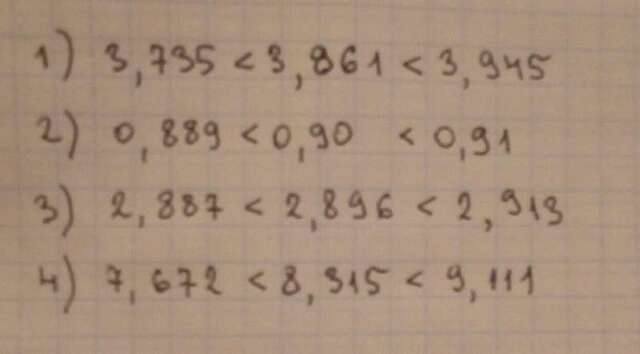 1) 3,735 < 3,861 < 3,945
2) 0,889 < 0,90 < 0,91
3) 2,887 < 2,896 < 2,913
4) 7,672 < 8,315 < 9,111